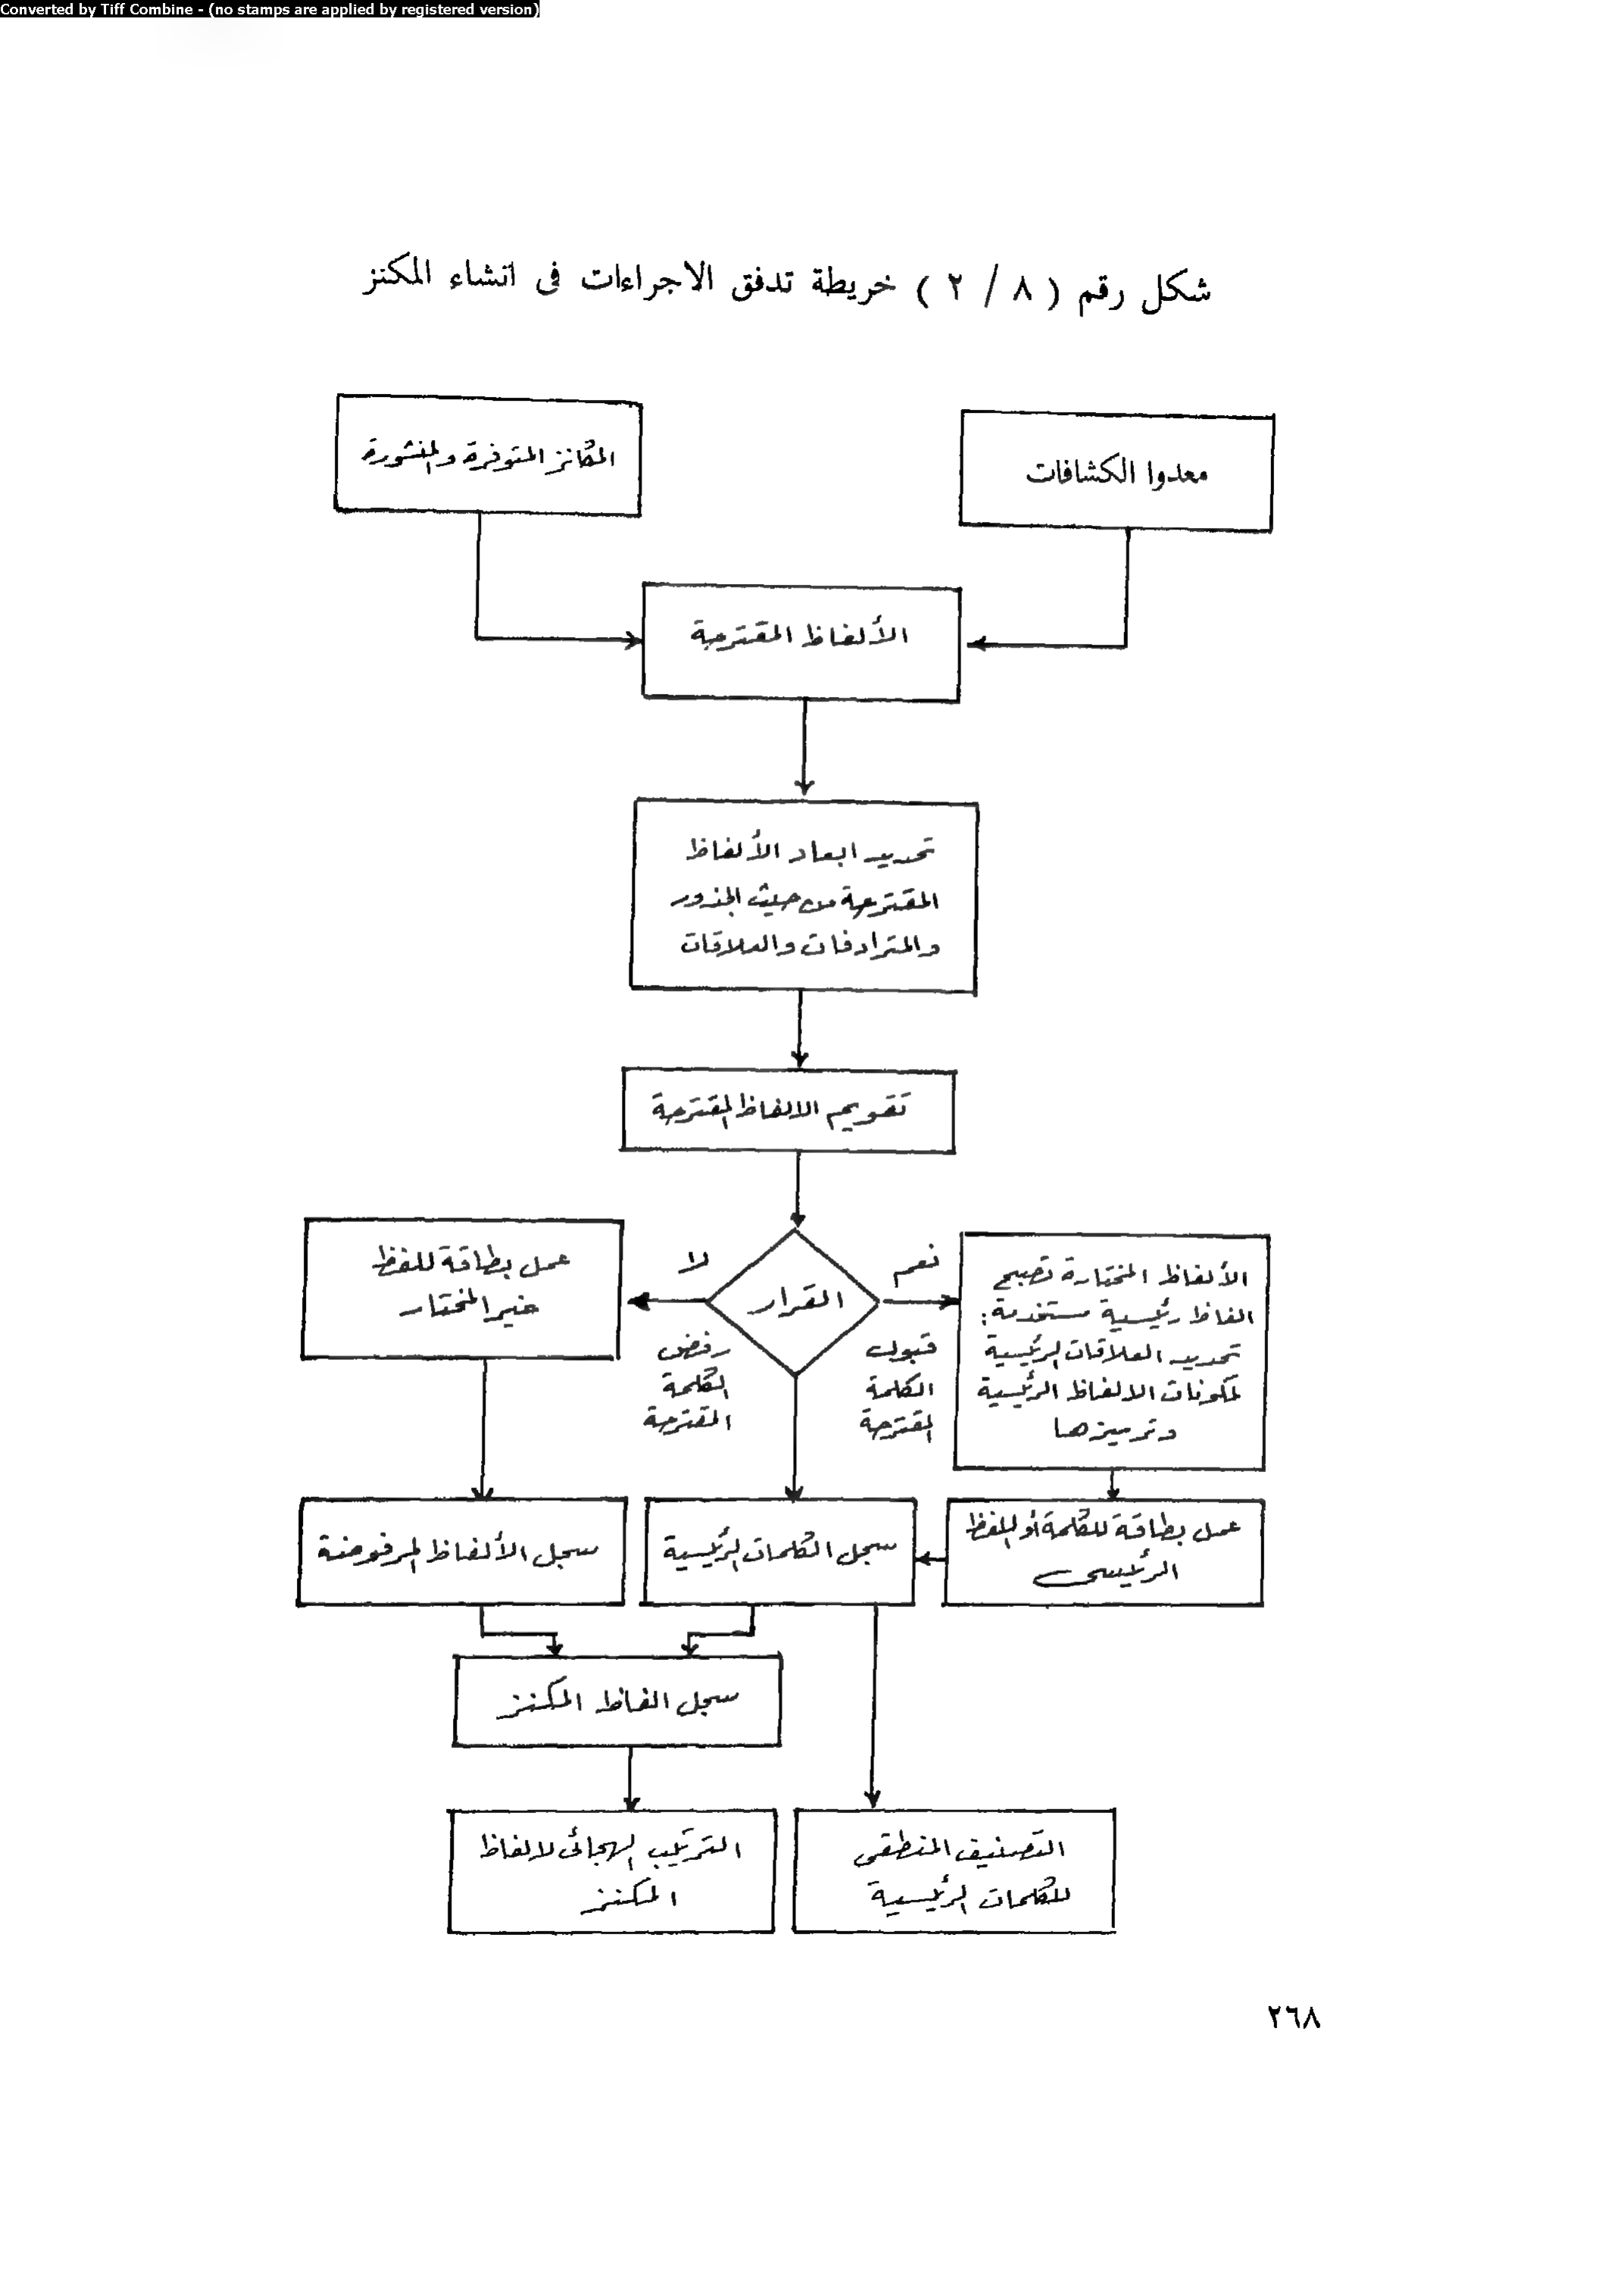 Converted by Tiff Combine - (no stamps are applied by registered version)
شكل رقم ( ٨ / ٢ ) خريطة تدفق الاجراءات فى انشاء المكنز
معدوا الكشافات
المكانز المتوفرة والمنشورة
الألفاظ المقترحة
تحديد ابعاد الألفاظ
المقترحة من حيث الجذور
والمترادفات والعلاقات
تقويم الالفاظ المقترحة
القرار
نعم
قبول
الكلمة
المقترحة
لا
رفض
الكلمة
المقترحة
الألفاظ المختارة تصبح
الفاظ رئيسية مستخدمة :
تحديد العلاقات الرئيسية
لمكونات الالفاظ الرئيسية
وترميزها
عمل بطاقة للفظ
غير المختار
عمل بطاقة للكلمة أو اللفظ
الرئيسى
سجل الكلمات الرئيسية
سجل الألفاظ المرفوضة
سجل الفاظ المكنز
التصنيف المنطقى
للكلمات الرئيسية
الترتيب الهجائى لالفاظ
المكنز
٢٦٨